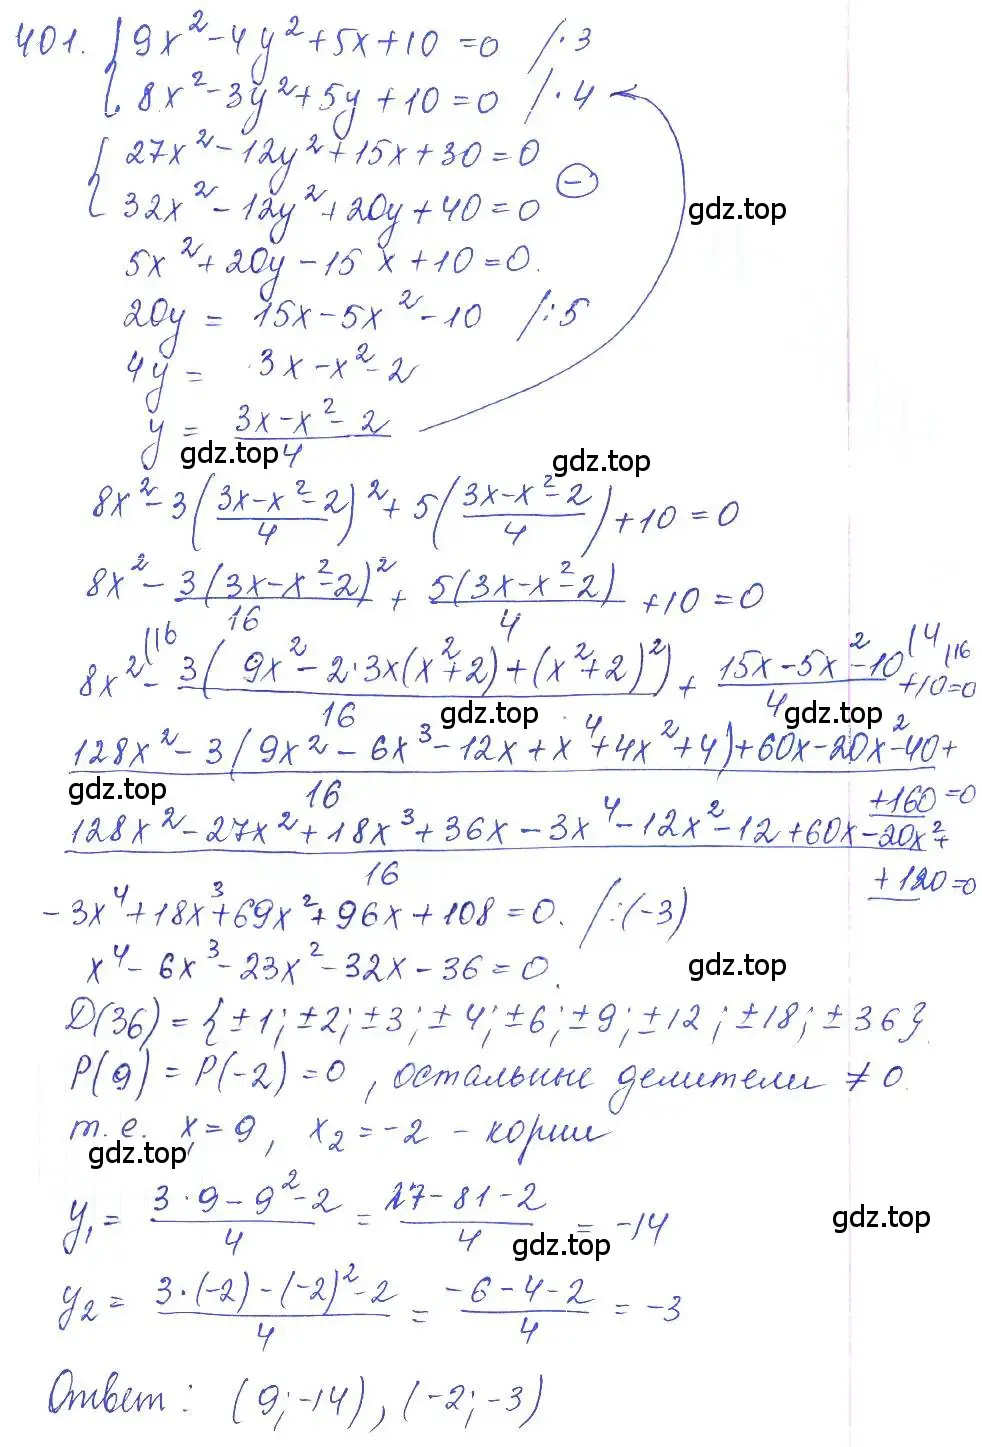 401. { 9x² - 4y² + 5x + 10 = 0 /·3
8x² - 3y² + 5y + 10 = 0 /·4
{ 27x² - 12y² + 15x + 30 = 0
32x² - 12y² + 20y + 40 = 0 (-)
gdz.top
5x² + 20y - 15x + 10 = 0.
20y = 15x - 5x² - 10 /:5
4y = 3x - x² - 2
y = (3x - x² - 2)/4
gdz.top
gdz.top
8x² - 3((3x - x² - 2)/4)² + 5((3x - x² - 2)/4) + 10 = 0
8x² - 3(3x - x² - 2)²/16 + 5(3x - x² - 2)/4 + 10 = 0
8x² (16 - 3(9x² - 2·3x(x² + 2) + (x² + 2)²)/16 + (15x - 5x² - 10)/4 (4 + 10 = 0 (16
gdz.top
gdz.top
128x² - 3(9x² - 6x³ - 12x + x⁴ + 4x² + 4) + 60x - 20x² - 40 +
gdz.top
16
+ 160 = 0
128x² - 27x² + 18x³ + 36x - 3x⁴ - 12x² - 12 + 60x - 20x² +
16
+ 120 = 0
- 3x⁴ + 18x³ + 69x² + 96x + 108 = 0. /:(-3)
x⁴ - 6x³ - 23x² - 32x - 36 = 0.
gdz.top
D(36) = {±1; ±2; ±3; ±4; ±6; ±9; ±12; ±18; ±36}.
P(9) = P(-2) = 0, остальные делители ≠ 0.
т.е. x₁ = 9, x₂ = -2 - корни
gdz.top
y₁ = (3·9 - 9² - 2)/4 = (27 - 81 - 2)/4 = -14
gdz.top
gdz.top
y₂ = (3·(-2) - (-2)² - 2)/4 = (-6 - 4 - 2)/4 = -3
Ответ: (9; -14), (-2; -3)